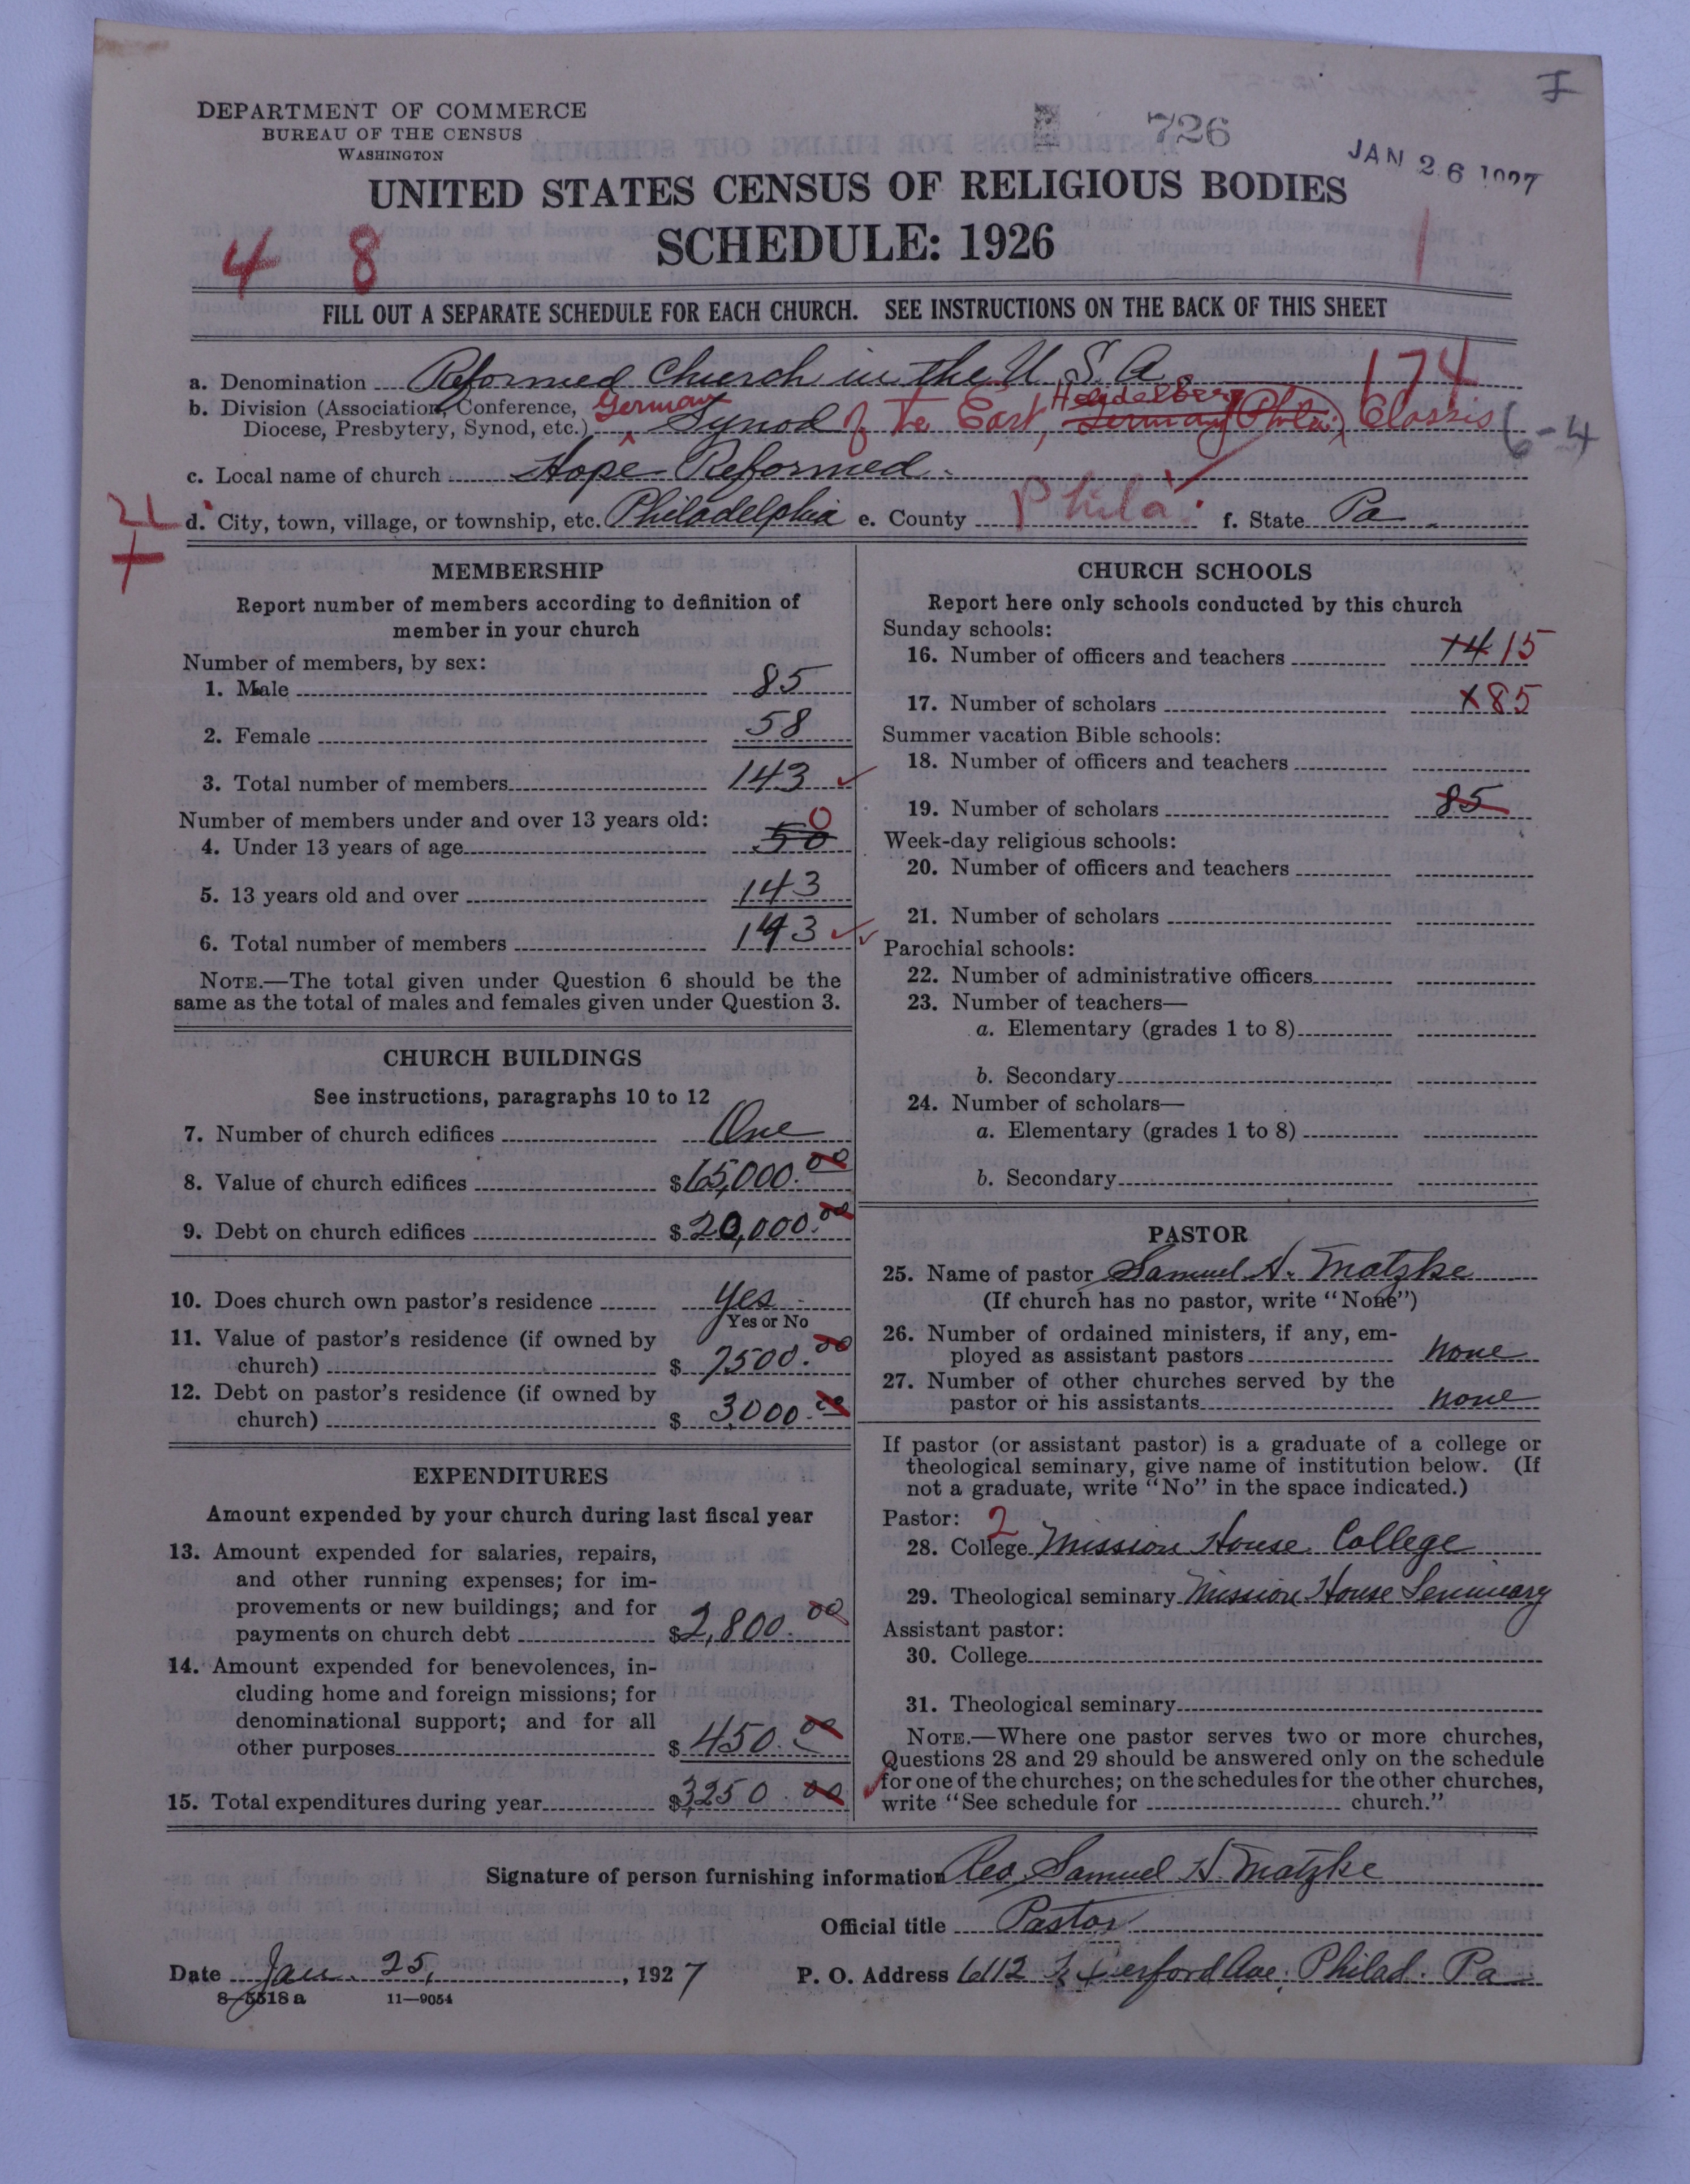 I
DEPARTMENT OF COMMERCE
BUREAU OF THE CENSUS
WASHINGTON
726
JAN 26 1927
UNITED STATES CENSUS OF RELIGIOUS BODIES
SCHEDULE: 1926
4 8
1
FILL OUT A SEPARATE SCHEDULE FOR EACH CHURCH. SEE INSTRUCTIONS ON THE BACK OF THIS SHEET
a. Denomination Reformed Church in the U. S. A. 174
b. Division (Association, Conference, Diocese, Presbytery, Synod, etc.) German Synod of the East, Heidelberg German (Phila.) Classis 6-4
c. Local name of church Hope Reformed
d. City, town, village, or township, etc. Philadelphia e. County Phila. f. State Pa.
MEMBERSHIP
Report number of members according to definition of
member in your church
Number of members, by sex:
1. Male 85
2. Female 58
3. Total number of members 143
Number of members under and over 13 years old:
4. Under 13 years of age 50 0
5. 13 years old and over 143
6. Total number of members 143
NOTE.—The total given under Question 6 should be the
same as the total of males and females given under Question 3.
CHURCH BUILDINGS
See instructions, paragraphs 10 to 12
7. Number of church edifices One
8. Value of church edifices $65,000.00
9. Debt on church edifices $20,000.00
10. Does church own pastor's residence Yes
Yes or No
11. Value of pastor's residence (if owned by
church) $ 7500.00
12. Debt on pastor's residence (if owned by
church) $ 3000.00
EXPENDITURES
Amount expended by your church during last fiscal year
13. Amount expended for salaries, repairs,
and other running expenses; for im-
provements or new buildings; and for
payments on church debt $2,800.00
14. Amount expended for benevolences, in-
cluding home and foreign missions; for
denominational support; and for all
other purposes $ 450.00
15. Total expenditures during year $3250.00
CHURCH SCHOOLS
Report here only schools conducted by this church
Sunday schools:
16. Number of officers and teachers 15
17. Number of scholars X85
Summer vacation Bible schools:
18. Number of officers and teachers
19. Number of scholars 85
Week-day religious schools:
20. Number of officers and teachers
21. Number of scholars
Parochial schools:
22. Number of administrative officers
23. Number of teachers—
a. Elementary (grades 1 to 8)
b. Secondary
24. Number of scholars—
a. Elementary (grades 1 to 8)
b. Secondary
PASTOR
25. Name of pastor Samuel H. Matzke
(If church has no pastor, write "None")
26. Number of ordained ministers, if any, em-
ployed as assistant pastors none
27. Number of other churches served by the
pastor or his assistants none
If pastor (or assistant pastor) is a graduate of a college or
theological seminary, give name of institution below. (If
not a graduate, write "No" in the space indicated.)
Pastor: 2
28. College Mission House College
29. Theological seminary Mission House Seminary
Assistant pastor:
30. College
31. Theological seminary
NOTE.—Where one pastor serves two or more churches,
Questions 28 and 29 should be answered only on the schedule
for one of the churches; on the schedules for the other churches,
write "See schedule for church."
Signature of person furnishing information Rev. Samuel H. Matzke
Official title Pastor
Date Jan. 25, 1927 P. O. Address 6112 Ave. Philad. Pa
8-5518a 11—9054